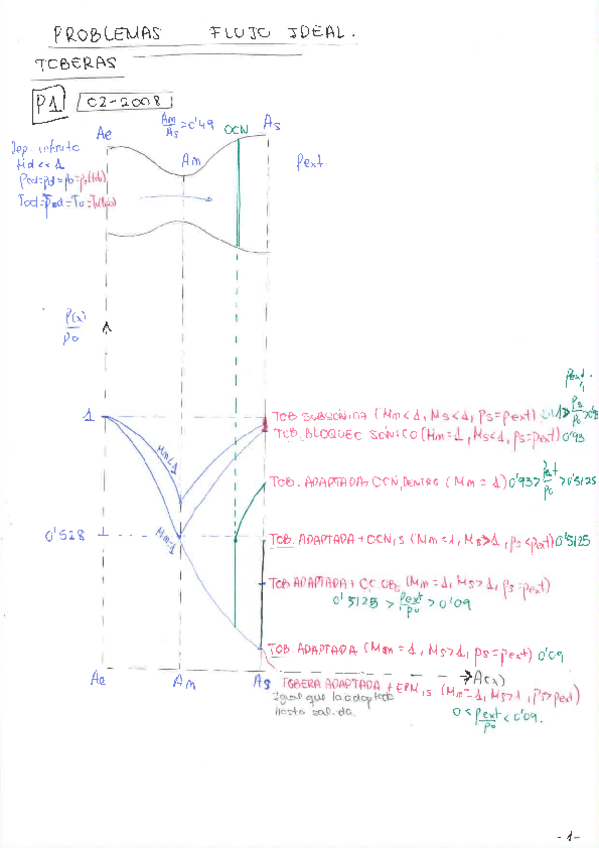 PROBLEMAS FLUJO IDEAL.
TOBERAS
P1 02-2008
Ae
Am/As = 0'49
OCN
As
Dep. infinito
Md << 1
Am
Pext
1
P(x)/P0
Mm<1
Mm=1
0'528
Pext
TOB SUBSÓNICA (Mm<1, Ms<1, ps=pext)
TOB. BLOQUEO SÓNICO (Mm=1, Ms<1, ps=pext) 0'93
TOB. ADAPTADA+OCN,DENTRO (Mm=1) 0'93> Pext/P0 >0'5125
TOB. ADAPTADA + OCN,S (Mm=1, Ms>1, ps<pext) 0'5125
TOB ADAPTADA + OC.OBL (Mm=1, Ms>1, ps=pext)
0'5125 > Pext/P0 > 0'09
TOB. ADAPTADA (Mm=1, Ms>1, ps=pext) 0'09
Ae Am As A(x)
TOBERA ADAPTADA + EPM,S (Mm=1, Ms>1, ps>pext)
Igual que la adaptada
hasta salida.
0 < Pext/P0 < 0'09.
-1-